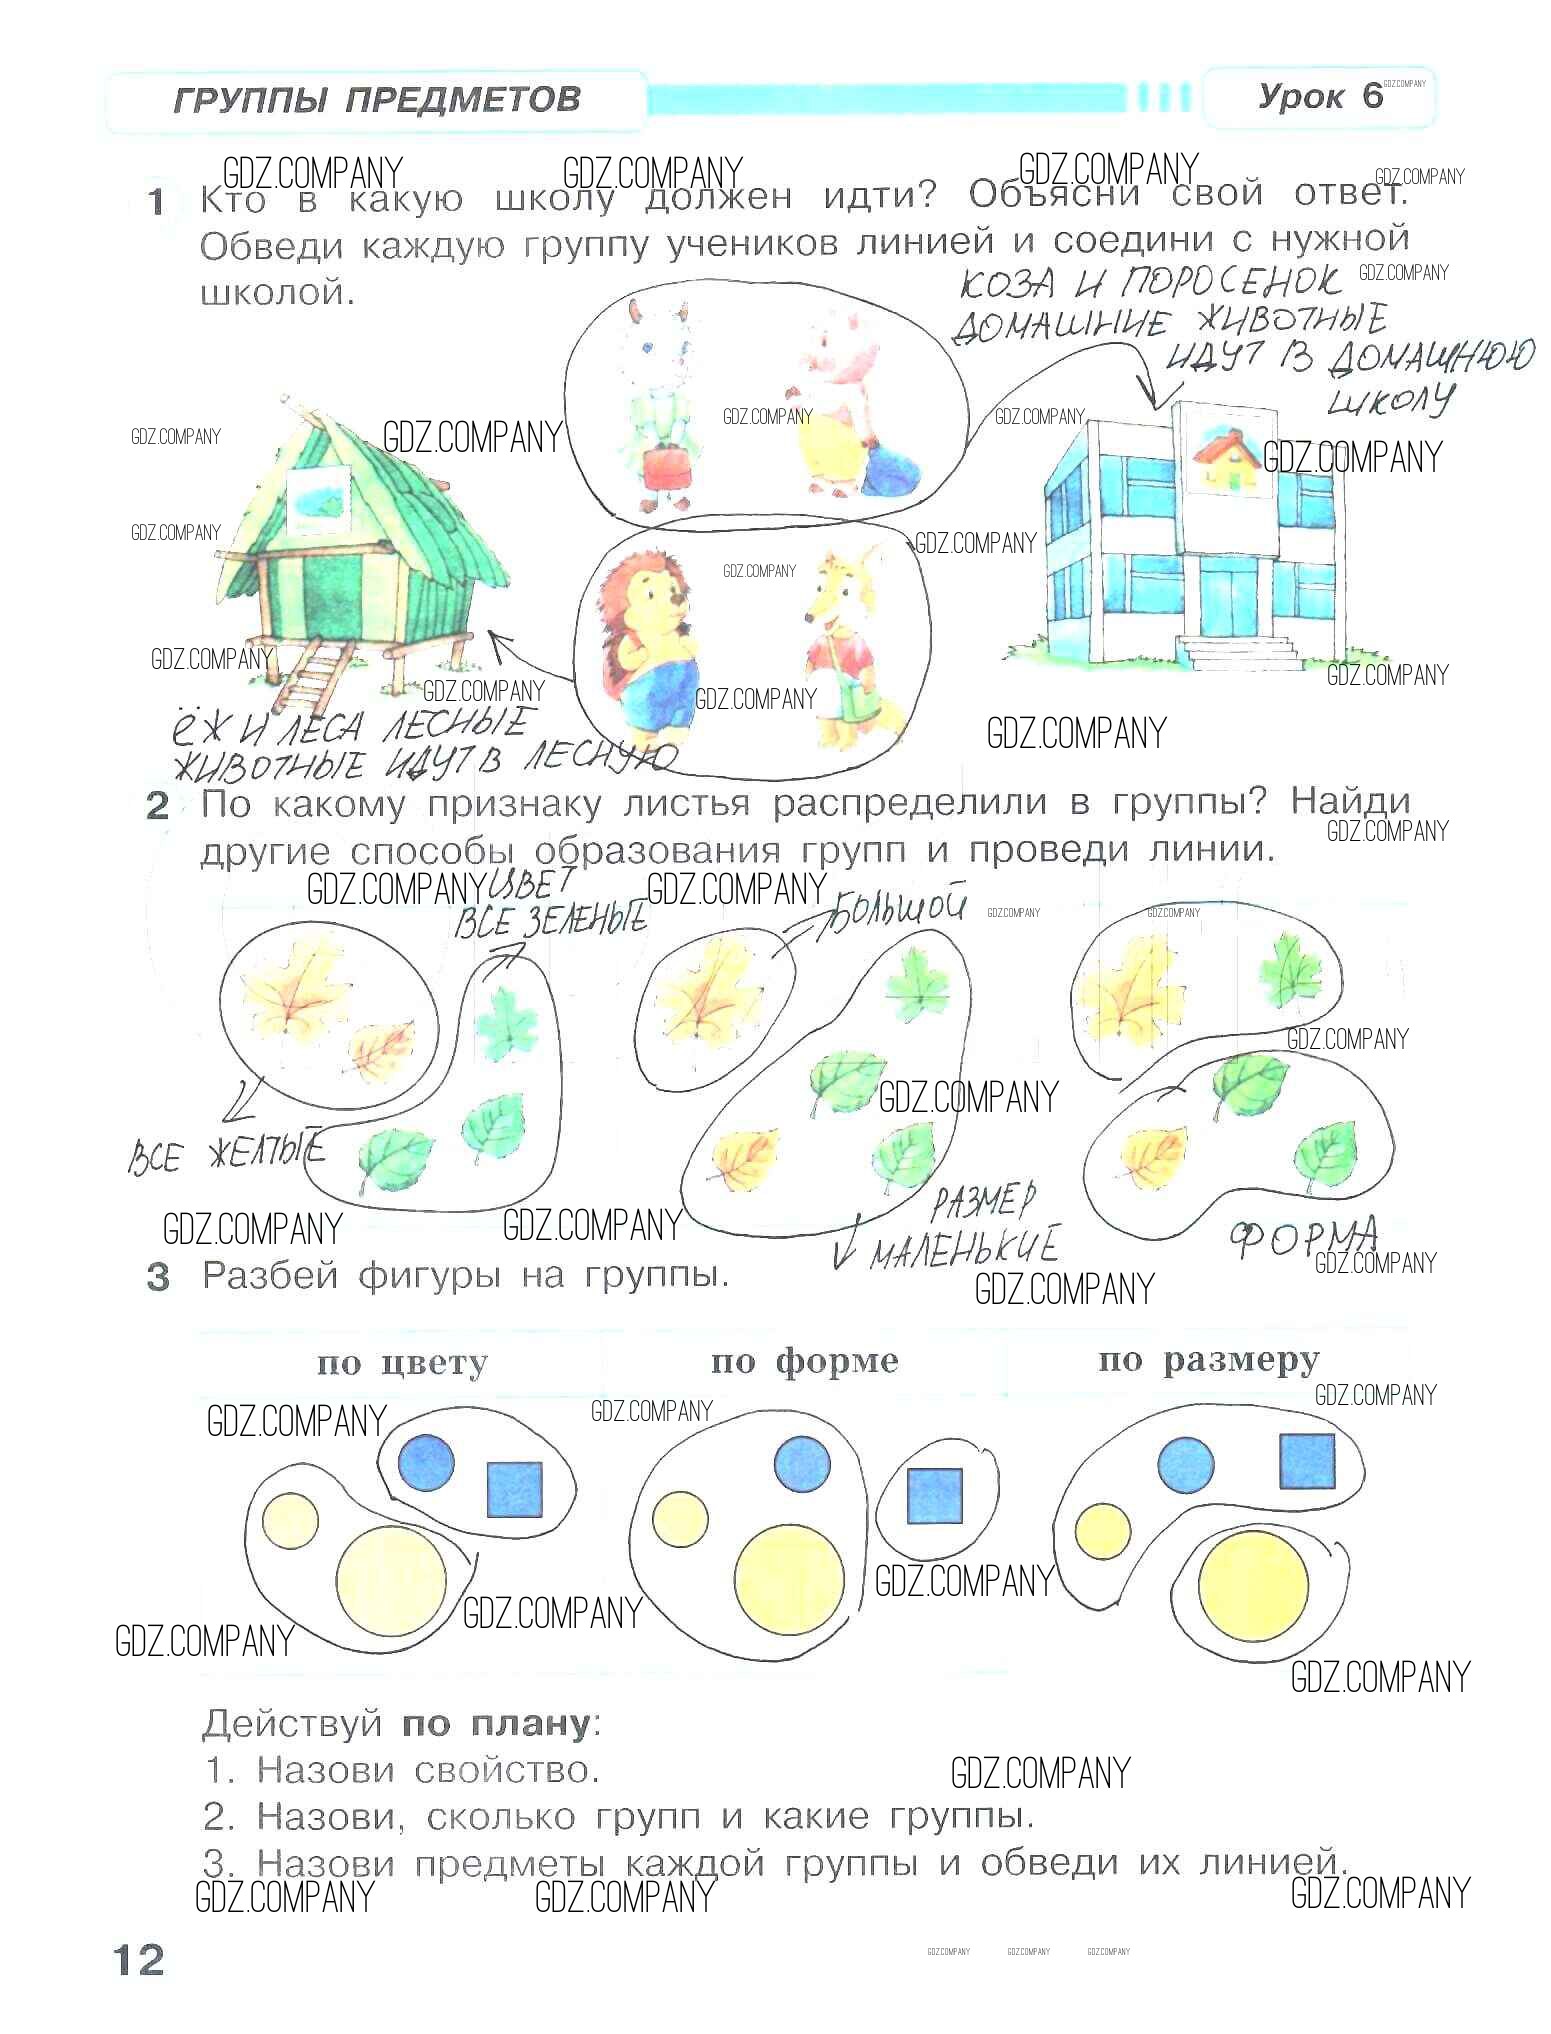 ГРУППЫ ПРЕДМЕТОВ
Урок 6
GDZ.COMPANY
GDZ.COMPANY
GDZ.COMPANY
GDZ.COMPANY
GDZ.COMPANY
1 Кто в какую школу должен идти? Объясни свой ответ.
Обведи каждую группу учеников линией и соедини с нужной
школой.
КОЗА И ПОРОСЕНОК
GDZ.COMPANY
ДОМАШНИЕ ЖИВОТНЫЕ
ИДУТ В ДОМАШНЮЮ
ШКОЛУ
GDZ.COMPANY
GDZ.COMPANY
GDZ.COMPANY
GDZ.COMPANY
GDZ.COMPANY
GDZ.COMPANY
GDZ.COMPANY
GDZ.COMPANY
GDZ.COMPANY
GDZ.COMPANY
GDZ.COMPANY
GDZ.COMPANY
GDZ.COMPANY
ЁЖ И ЛЕСА ЛЕСНЫЕ
ЖИВОТНЫЕ ИДУТ В ЛЕСНУЮ
GDZ.COMPANY
2 По какому признаку листья распределили в группы? Найди
GDZ.COMPANY
другие способы образования групп и проведи линии.
GDZ.COMPANY
GDZ.COMPANY
ЦВЕТ
ВСЕ ЗЕЛЕНЫЕ
БОЛЬШОЙ
GDZ.COMPANY
GDZ.COMPANY
GDZ.COMPANY
GDZ.COMPANY
ВСЕ ЖЕЛТЫЕ
РАЗМЕР
МАЛЕНЬКИЕ
ФОРМА
GDZ.COMPANY
GDZ.COMPANY
GDZ.COMPANY
3 Разбей фигуры на группы.
GDZ.COMPANY
по цвету
по форме
по размеру
GDZ.COMPANY
GDZ.COMPANY
GDZ.COMPANY
GDZ.COMPANY
GDZ.COMPANY
GDZ.COMPANY
GDZ.COMPANY
Действуй по плану:
1. Назови свойство.
GDZ.COMPANY
2. Назови, сколько групп и какие группы.
3. Назови предметы каждой группы и обведи их линией.
GDZ.COMPANY
GDZ.COMPANY
GDZ.COMPANY
12
GDZ.COMPANY
GDZ.COMPANY
GDZ.COMPANY